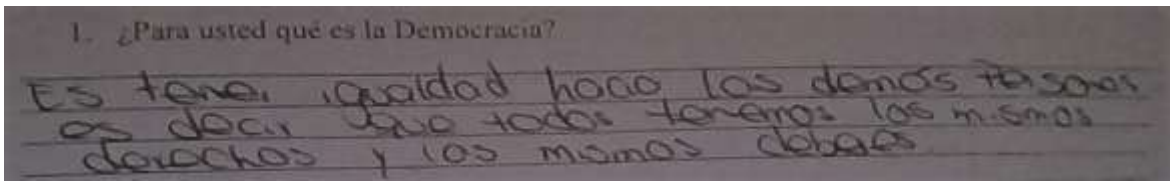 1. ¿Para usted qué es la Democracia?
Es tener igualdad hacia las demás personas
es decir que todos tenemos los mismos
derechos y los mismos deberes